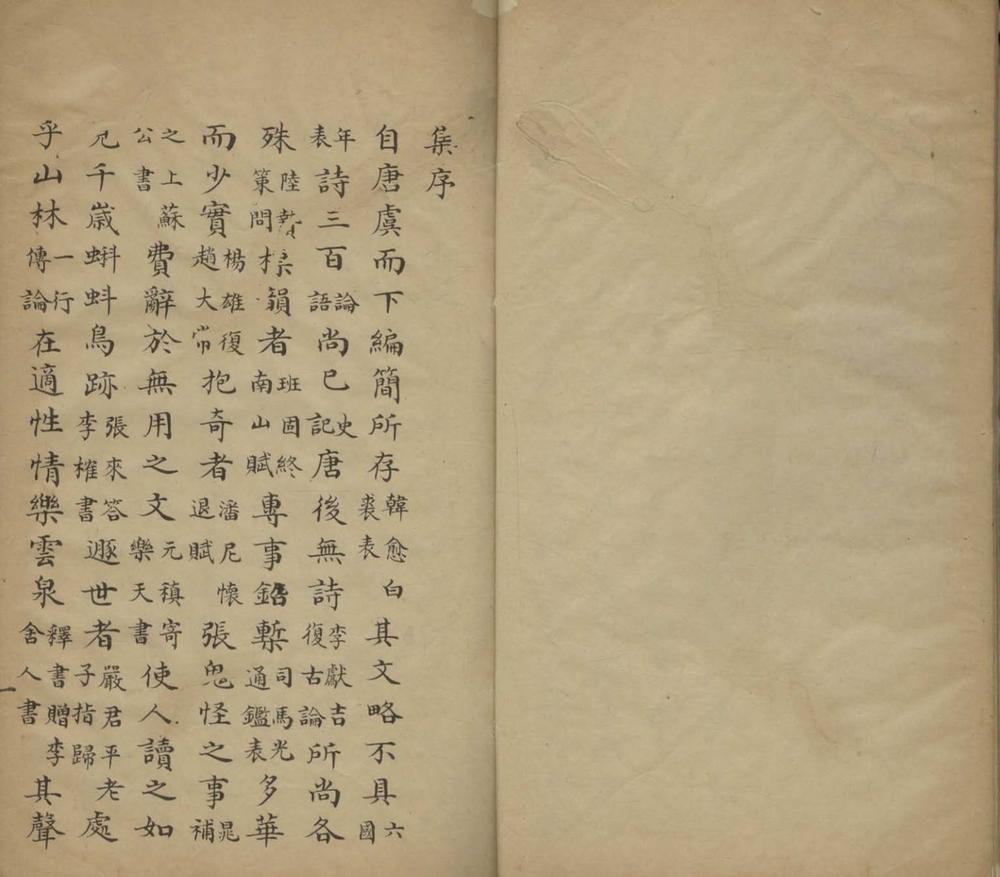 集序
自唐虞而下編簡所存韓愈白裘表其文略不具六國
年表詩三百論語尚已史記唐後無詩李獻吉復古論所尚各
殊陸贄策問韻者班固終南山賦專事鉛槧司馬光通鑑表多華
而少實楊雄復趙大常抱奇者潘尼懷退賦張鬼怪之事晁補
之上蘇公書費辭於無用之文元稹寄樂天書使人讀之如
見千歲蝌蚪鳥跡張來答李榷書遯世者嚴君平老子指歸處
乎山林一行傳論在適性情樂雲泉釋書贈李舍人書其聲